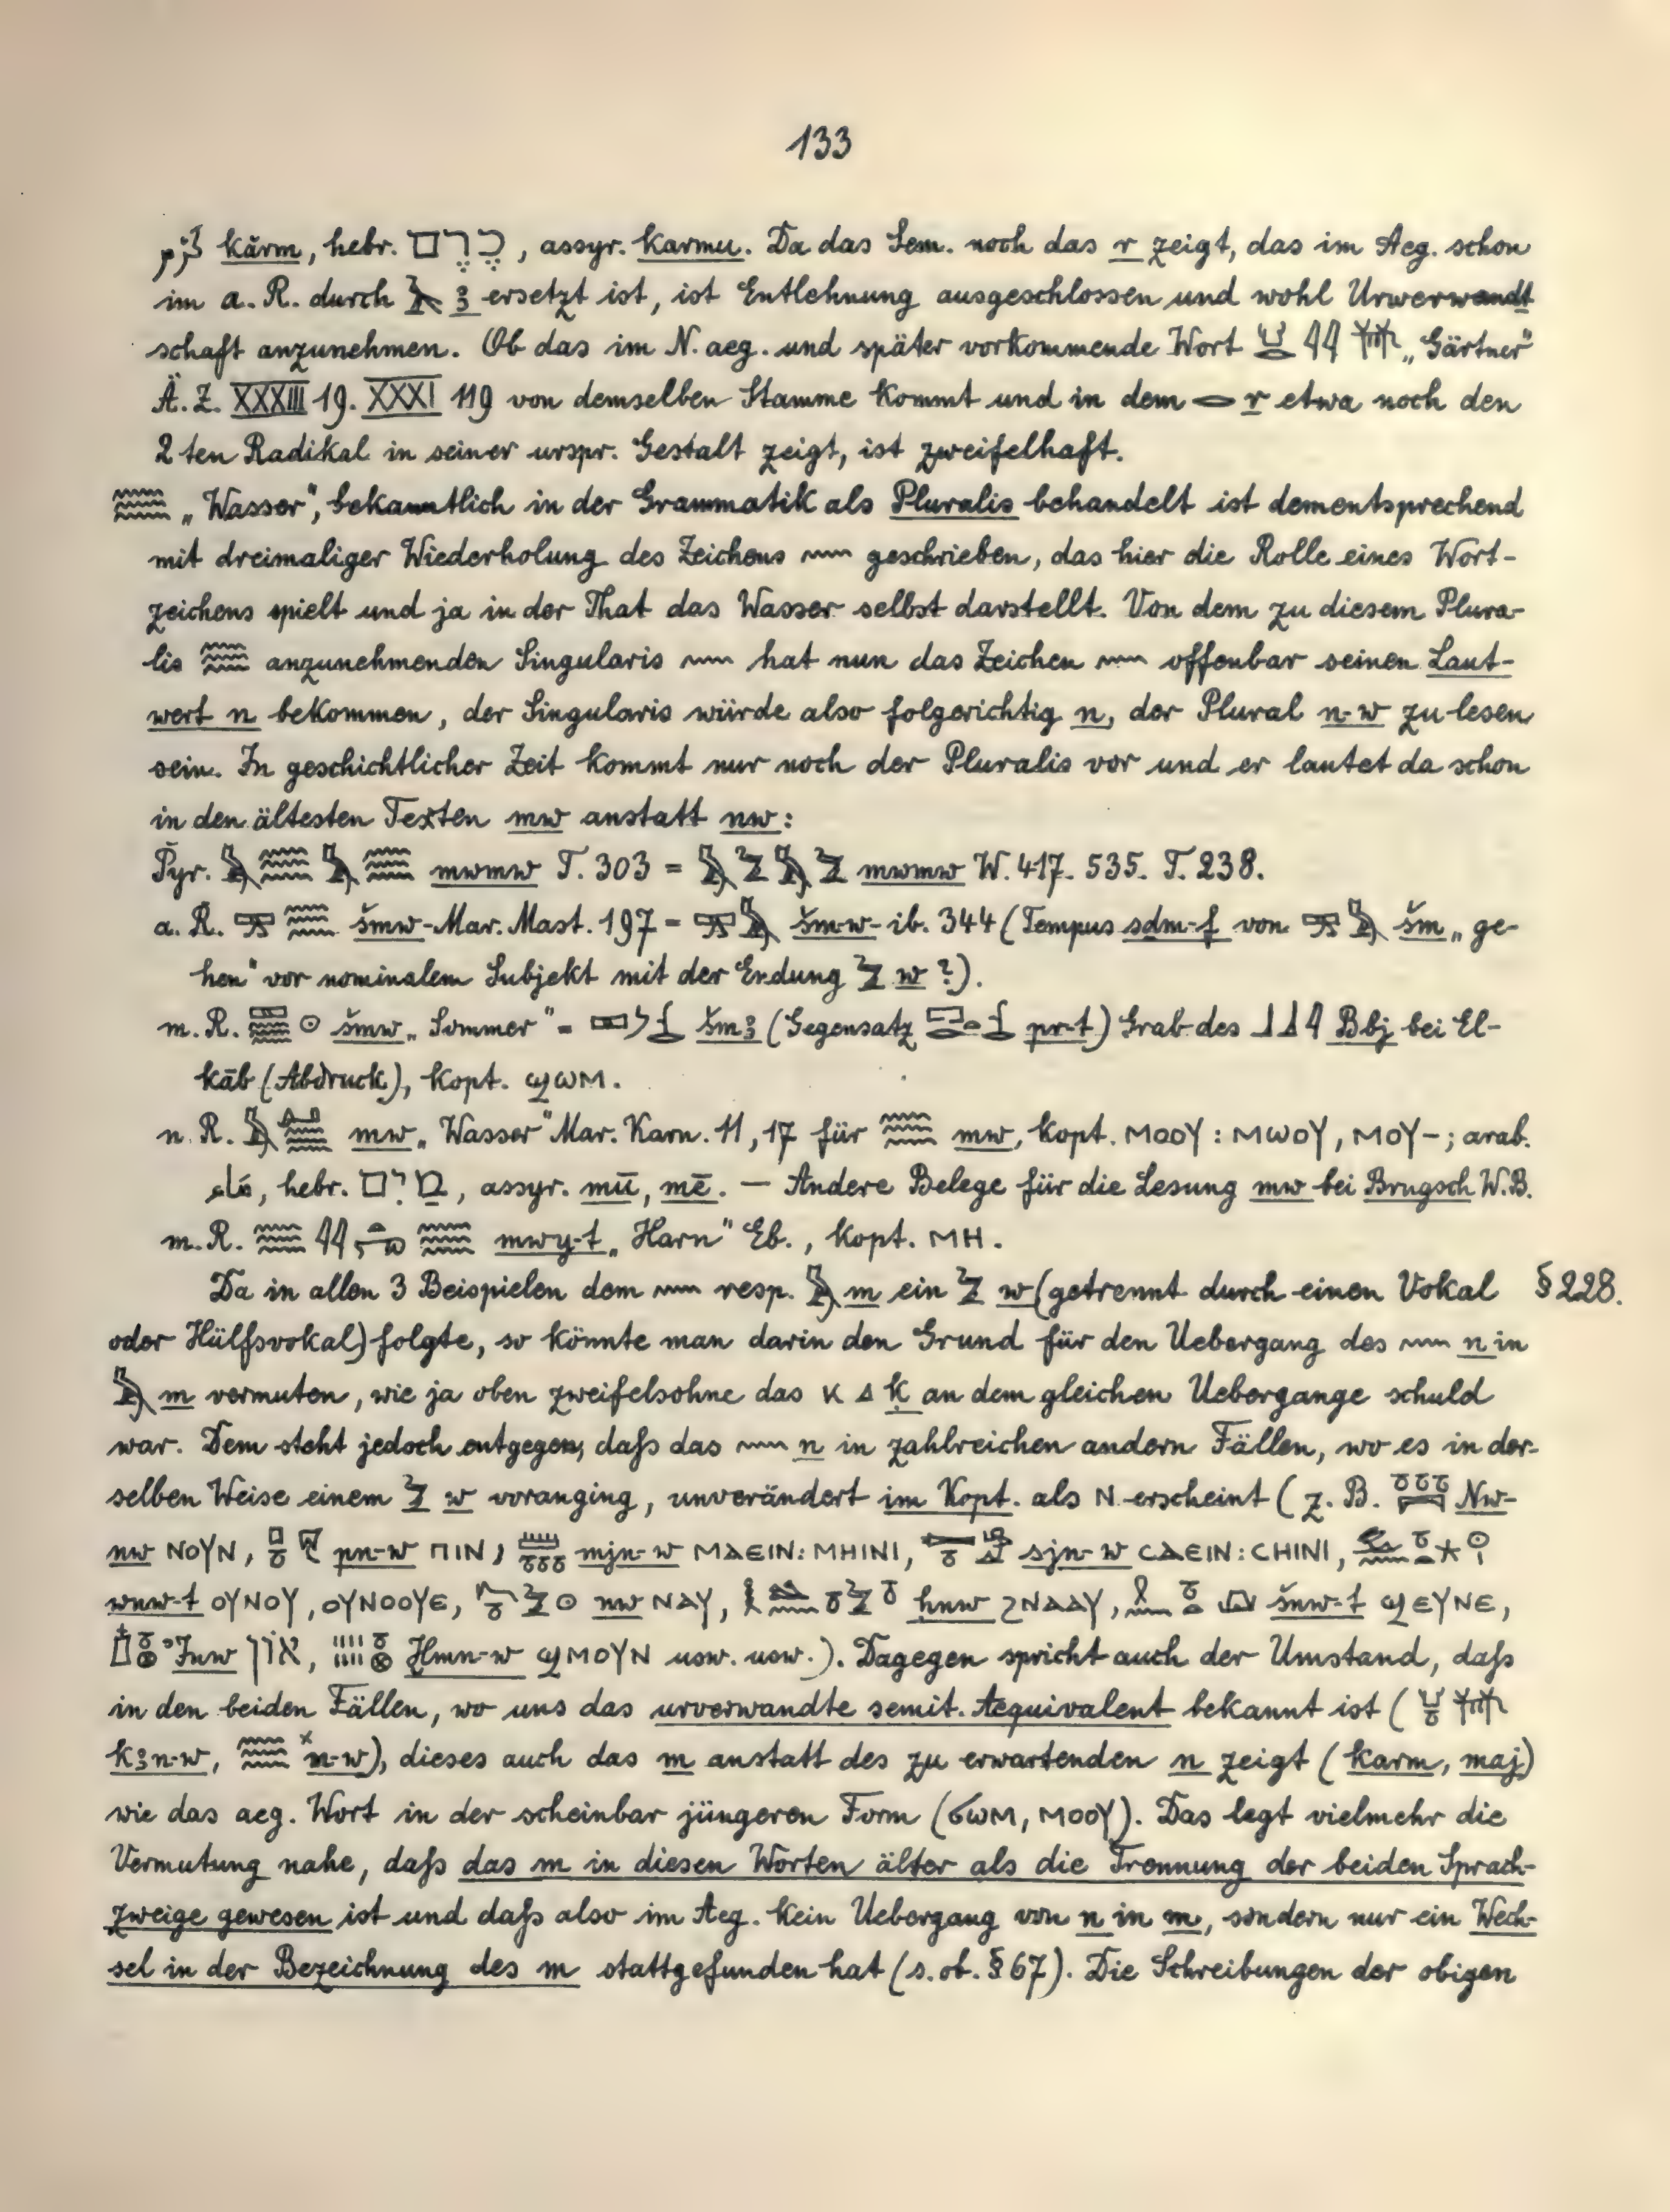 133
كَرْم kărm, hebr. כֶּרֶם, assyr. karmu. Da das Sem. noch das r zeigt, das im Aeg. schon
im a. R. durch 𓄿 ꜣ ersetzt ist, ist Entlehnung ausgeschlossen und wohl Urverwandt
schaft anzunehmen. Ob das im N. aeg. und später vorkommende Wort „Gärtner“
Ä. Z. XXXIII 19. XXXI 119 von demselben Stamme kommt und in dem 𓂋 r etwa noch den
2 ten Radikal in seiner urspr. Gestalt zeigt, ist zweifelhaft.
𓈗 „Wasser“, bekanntlich in der Grammatik als Pluralis behandelt ist dementsprechend
mit dreimaliger Wiederholung des Zeichens 𓈖 geschrieben, das hier die Rolle eines Wort-
zeichens spielt und ja in der That das Wasser selbst darstellt. Von dem zu diesem Plura-
lis 𓈗 anzunehmenden Singularis 𓈖 hat nun das Zeichen 𓈖 offenbar seinen Laut-
wert n bekommen, der Singularis würde also folgerichtig n, der Plural n-w zu lesen
sein. In geschichtlicher Zeit kommt nur noch der Pluralis vor und er lautet da schon
in den ältesten Texten mw anstatt nw:
Pyr. 𓅓𓈗𓅓𓈗 mwmw T. 303 = 𓅓𓅱𓅓𓅱 mwmw W. 417. 535. T. 238.
a. R. 𓈗 šmw- Mar. Mast. 197 = 𓅓 šm-w- ib. 344 (Tempus sdm-f von 𓅓 šm „ge-
hen“ vor nominalem Subjekt mit der Endung 𓅱 w ?).
m. R. 𓈙𓈗𓇳 šmw „Sommer“ = šmꜣ (Gegensatz pr-t) Grab des 𓃀𓃀𓇋 Bbj bei El-
kāb (Abdruck), kopt. ϣⲱⲙ.
n. R. 𓅓𓈗 mw „Wasser“ Mar. Karn. 11, 17 für 𓈗 mw, kopt. ⲙⲟⲟⲩ : ⲙⲱⲟⲩ, ⲙⲟⲩ-; arab.
مَاء, hebr. מַיִם, assyr. mū, mē. — Andere Belege für die Lesung mw bei Brugsch W.B.
m. R. 𓈗𓇋𓇋𓏏𓂺𓈗 mwy-t „Harn“ Eb., kopt. ⲙⲏ.
Da in allen 3 Beispielen dem 𓈖 resp. 𓅓 m ein 𓅱 w (getrennt durch einen Vokal § 228.
oder Hülfsvokal) folgte, so könnte man darin den Grund für den Uebergang des 𓈖 n in
𓅓 m vermuten, wie ja oben zweifelsohne das ⲕ 𓈎 ḳ an dem gleichen Uebergange schuld
war. Dem steht jedoch entgegen, daß das 𓈖 n in zahlreichen andern Fällen, wo es in der-
selben Weise einem 𓅱 w voranging, unverändert im Kopt. als ⲛ erscheint ( z. B. 𓏌𓏌𓏌𓇯 Nw-
nw ⲛⲟⲩⲛ, pn-w ⲡⲓⲛ, mjn-w ⲙⲁⲉⲓⲛ : ⲙⲏⲓⲛⲓ, sjn-w ⲥⲁⲉⲓⲛ : ⲥⲏⲓⲛⲓ,
wnw-t ⲟⲩⲛⲟⲩ, ⲟⲩⲛⲟⲟⲩⲉ, nw ⲛⲁⲩ, hnw ϩⲛⲁⲁⲩ, šnw-t ϣⲉⲩⲛⲉ,
𓉺𓏌𓊖 Jnw אוֹן, 𓏌𓊖 Ḫmn-w ϣⲙⲟⲩⲛ usw. usw.). Dagegen spricht auch der Umstand, daß
in den beiden Fällen, wo uns das urverwandte semit. Aequivalent bekannt ist (
kꜣn-w, 𓈗 ˣn-w), dieses auch das m anstatt des zu erwartenden n zeigt (karm, maj)
wie das aeg. Wort in der scheinbar jüngeren Form (ϭⲱⲙ, ⲙⲟⲟⲩ). Das legt vielmehr die
Vermutung nahe, daß das m in diesen Worten älter als die Trennung der beiden Sprach-
zweige gewesen ist und daß also im Aeg. kein Uebergang von n in m, sondern nur ein Wech-
sel in der Bezeichnung des m stattgefunden hat (s. ob. § 67). Die Schreibungen der obigen